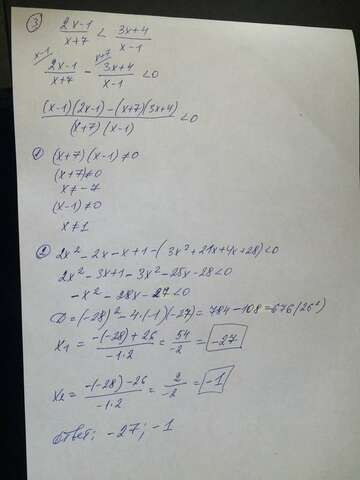 ③ (2x-1)/(x+7) < (3x+4)/(x-1)
x-1/ (2x-1)/(x+7) - x+7/ (3x+4)/(x-1) <0
((x-1)(2x-1)-(x+7)(3x+4))/((x+7)(x-1)) <0
① (x+7)(x-1)≠0
(x+7)≠0
x≠-7
(x-1)≠0
x≠1
② 2x²-2x-x+1-(3x²+21x+4x+28)<0
2x²-3x+1-3x²-25x-28<0
-x²-28x-27<0
D=(-28)²-4·(-1)(-27)=784-108=676(26²)
x₁=(-(-28)+26)/(-1·2)=54/-2=-27
x₂=(-(-28)-26)/(-1·2)=2/-2=-1
Ответ: -27; -1